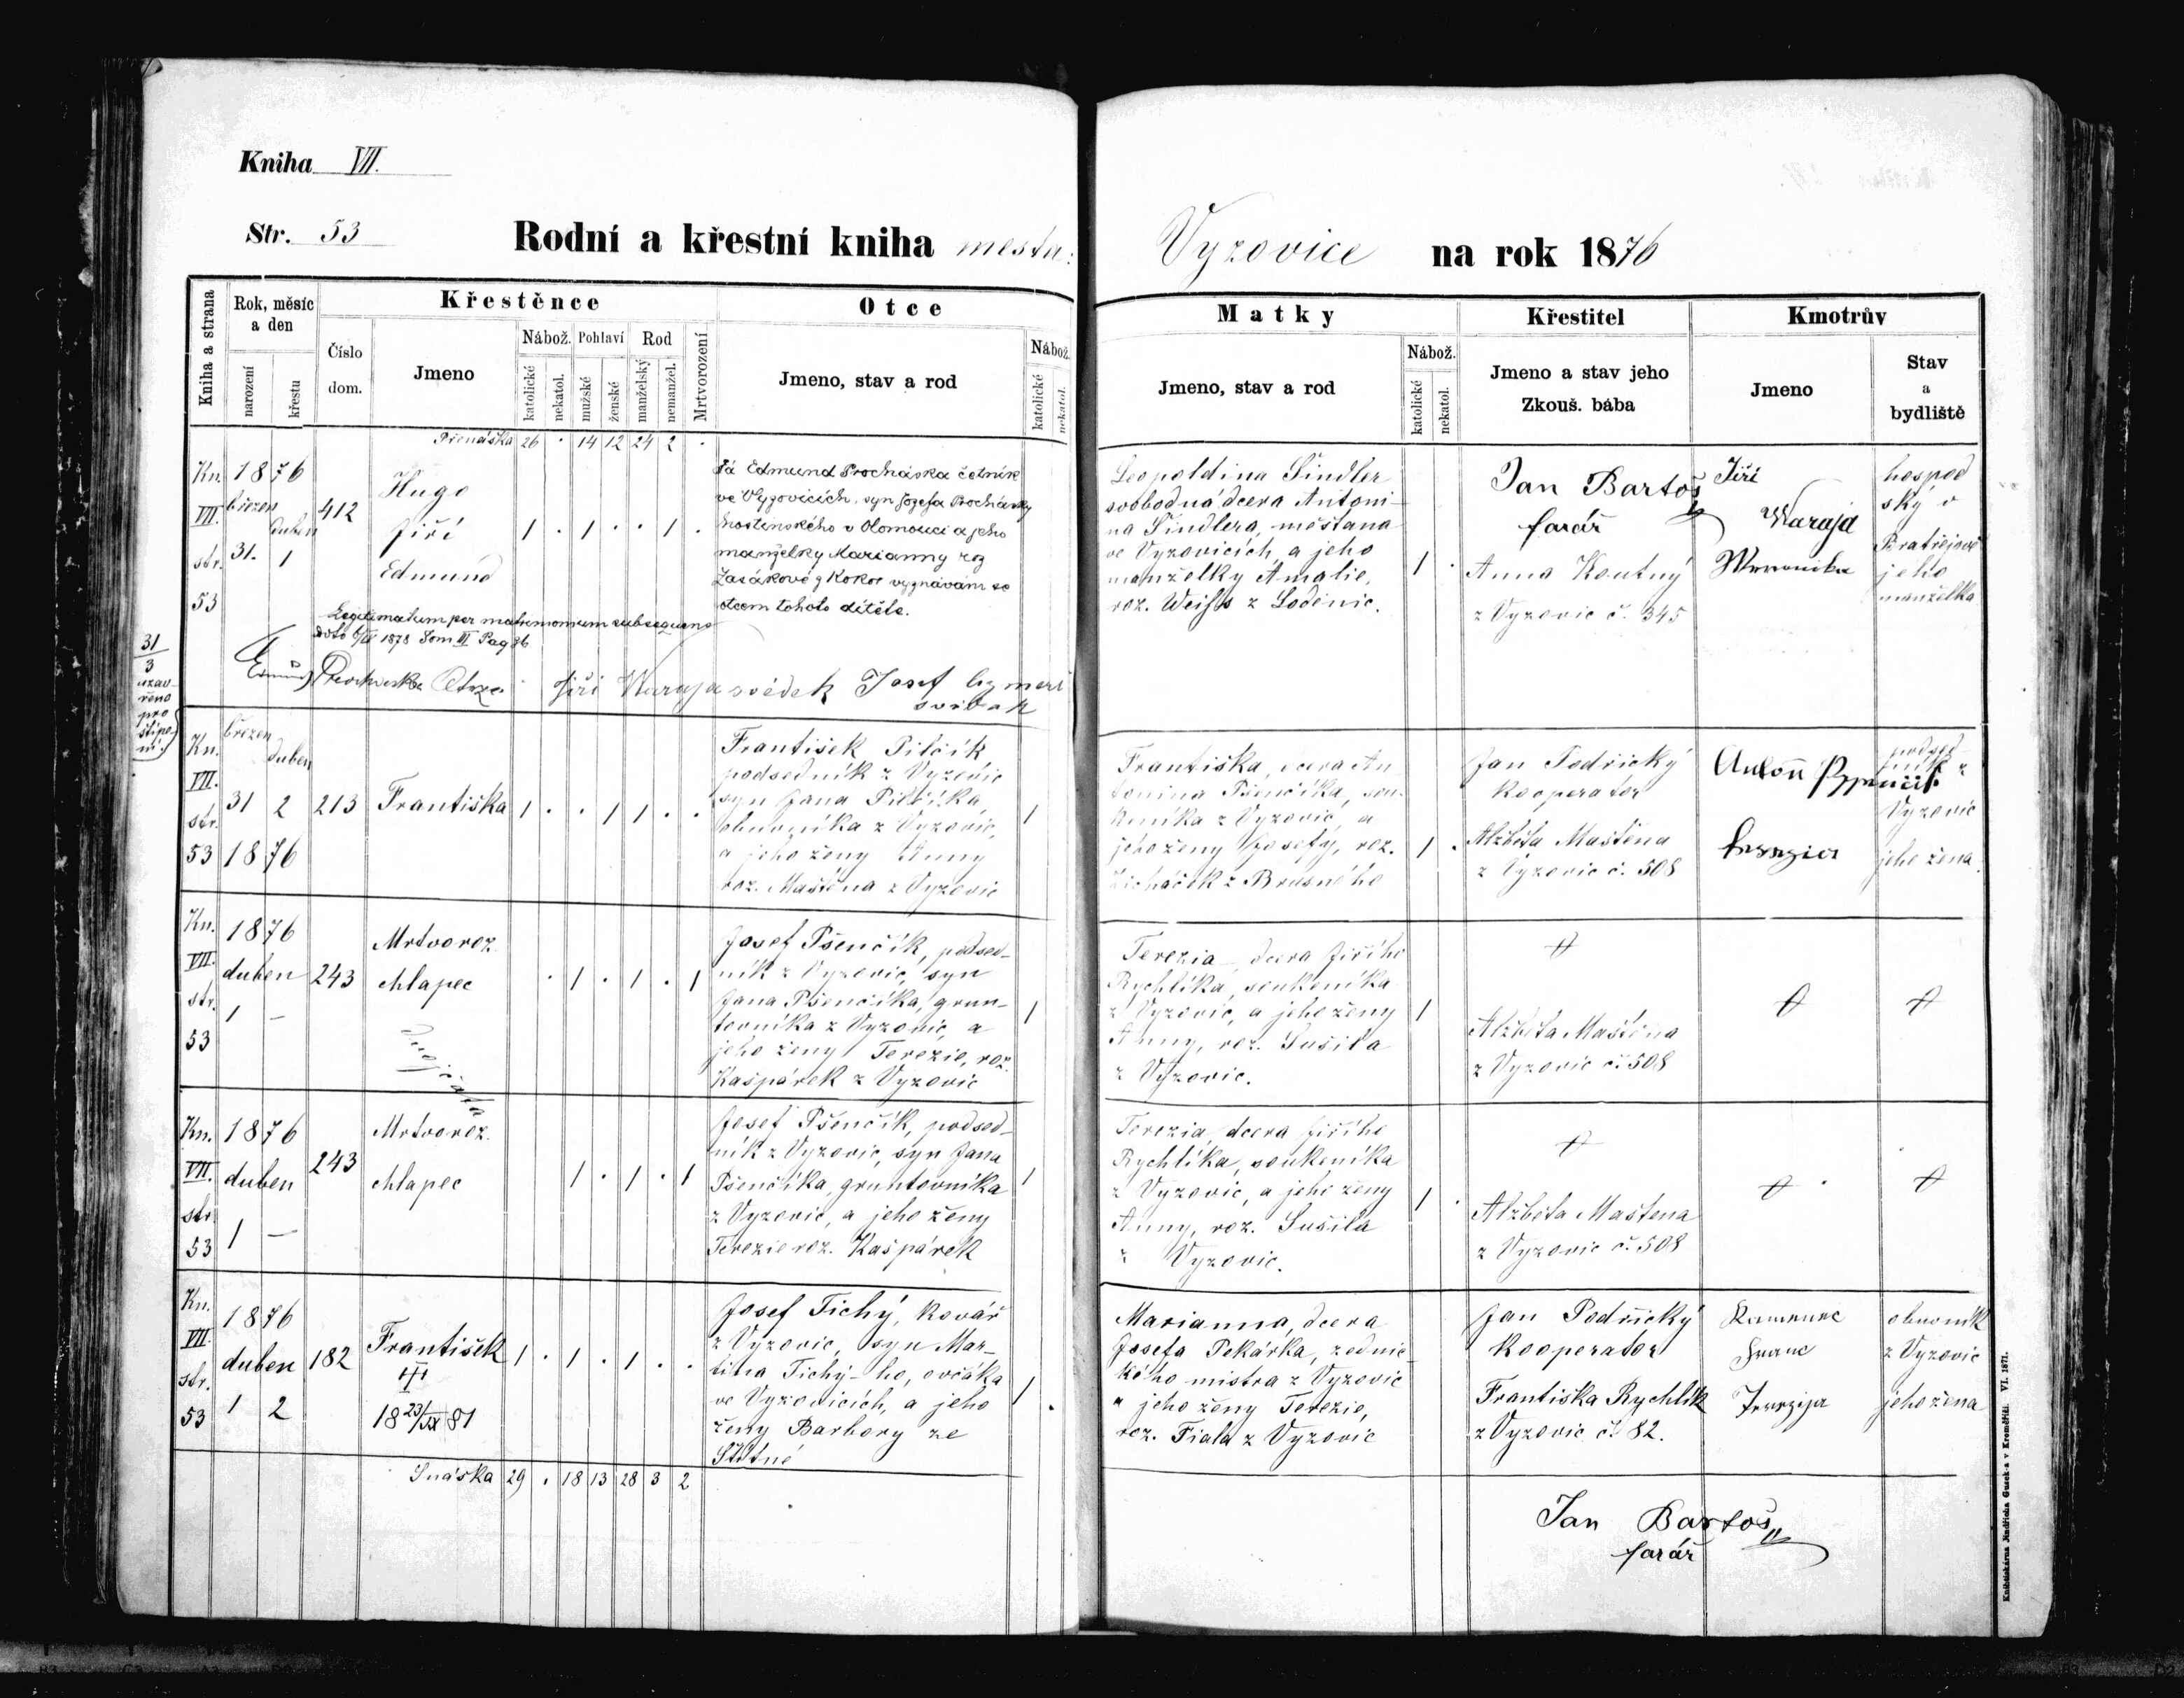 Kniha VII.
Str. 53
Rodní a křestní kniha města:
Vyzovice na rok 1876
Kniha a strana
Rok, měsíc a den
narození
křestu
Křestěnce
Číslo dom.
Jmeno
Nábož.
katolické
nekatol.
Pohlaví
mužské
ženské
Rod
manželský
nemanžel.
Mrtvorození
Otce
Jmeno, stav a rod
Nábož.
katolické
nekatol.
Matky
Jmeno, stav a rod
Nábož.
katolické
nekatol.
Křestitel
Jmeno a stav jeho
Zkouš. bába
Kmotrův
Jmeno
Stav
a
bydliště
Přenáška 26 . 14 12 24 2 .
Kn. VII. str. 53
1876
březen 31.
duben 1
412
Hugo
Jiří
Edmund
1 . 1 . . 1 .
Já Edmund Procháska četník
ve Vyzovicích, syn Jozefa Procházky
hostinského v Olomouci a jeho
manželky Marianny roz
z Kokor vyznávám se
otcem tohoto dítěte.
Legitimatum per matrimonium subsequens
1878 Tom III Pag 86
Jiří Waraja svědek Josef
svědek
Leopoldina Šindler
svobodná dcera Antoni-
na Šindlera, měšťana
ve Vyzovicích, a jeho
manželky Amalie,
roz. Weiss z Loděnic.
1 .
Jan Bartoš
farář
Anna Koutný
z Vyzovic č. 345
Jiří
Waraja
hospod
ský v
Bratřejově
jeho
manželka
31
3
Kn. VII. str. 53
březen 31
duben 2
1876
213
Františka
1 . . 1 1 . .
František Pilčík
podsedník z Vyzovic
syn Jana Pilčíka,
obuvníka z Vyzovic,
a jeho ženy Anny
roz. Maštěna z Vyzovic
1
Františka, dcera An
tonina Pšenčíka, sou-
kenníka z Vyzovic, a
jeho ženy Josefy, roz.
z Brusného
1 .
Jan Podřický
kooperátor
Alžběta Maštěna
z Vyzovic č. 508
podsed
ník z
Vyzovic
jeho žena.
Kn. VII. str. 53
1876
duben
1 —
243
Mrtvoroz.
chlapec
dvojčata
. 1 . 1 . 1
Josef Pšenčík, podsed-
ník z Vyzovic, syn
Jana Pšenčíka, grun-
tovníka z Vyzovic, a
jeho ženy Terezie, roz.
Kašpárek z Vyzovic
1
Terezia, dcera Jiřího
Rychlíka, soukeníka
z Vyzovic, a jeho ženy
Anny, roz. Sušila
z Vyzovic.
1
Alžběta Maštěna
z Vyzovic č. 508
Kn. VII. str. 53
1876
duben
1 —
243
Mrtvoroz.
chlapec
1 . 1 . 1
Josef Pšenčík, podsed-
ník z Vyzovic, syn Jana
Pšenčíka, gruntovníka
z Vyzovic, a jeho ženy
Terezie roz. Kašpárek
1
Terezia, dcera Jiřího
Rychlíka, soukeníka
z Vyzovic, a jeho ženy
Anny, roz. Sušila
z Vyzovic.
1 .
Alžběta Maštena
z Vyzovic č. 508
Kn. VII. str. 53
1876
duben
1 2
182
František
18 23/IX 81
1 . 1 . 1 . .
Josef Tichý, kovář
z Vyzovic, syn Mar-
tina Tichý-ho, ovčáka
ve Vyzovicích, a jeho
ženy Barbory ze
1 .
Marianna, dcera
Josefa Pekárka, zednic-
kého mistra z Vyzovic
a jeho ženy Terezie,
roz. Fiala z Vyzovic
Jan Podřický
kooperator
Františka Rychlík
z Vyzovic č. 82.
obuvník
z Vyzovic
jeho žena
Snáška 29 . 18 13 28 3 2
Jan Bartoš
farář